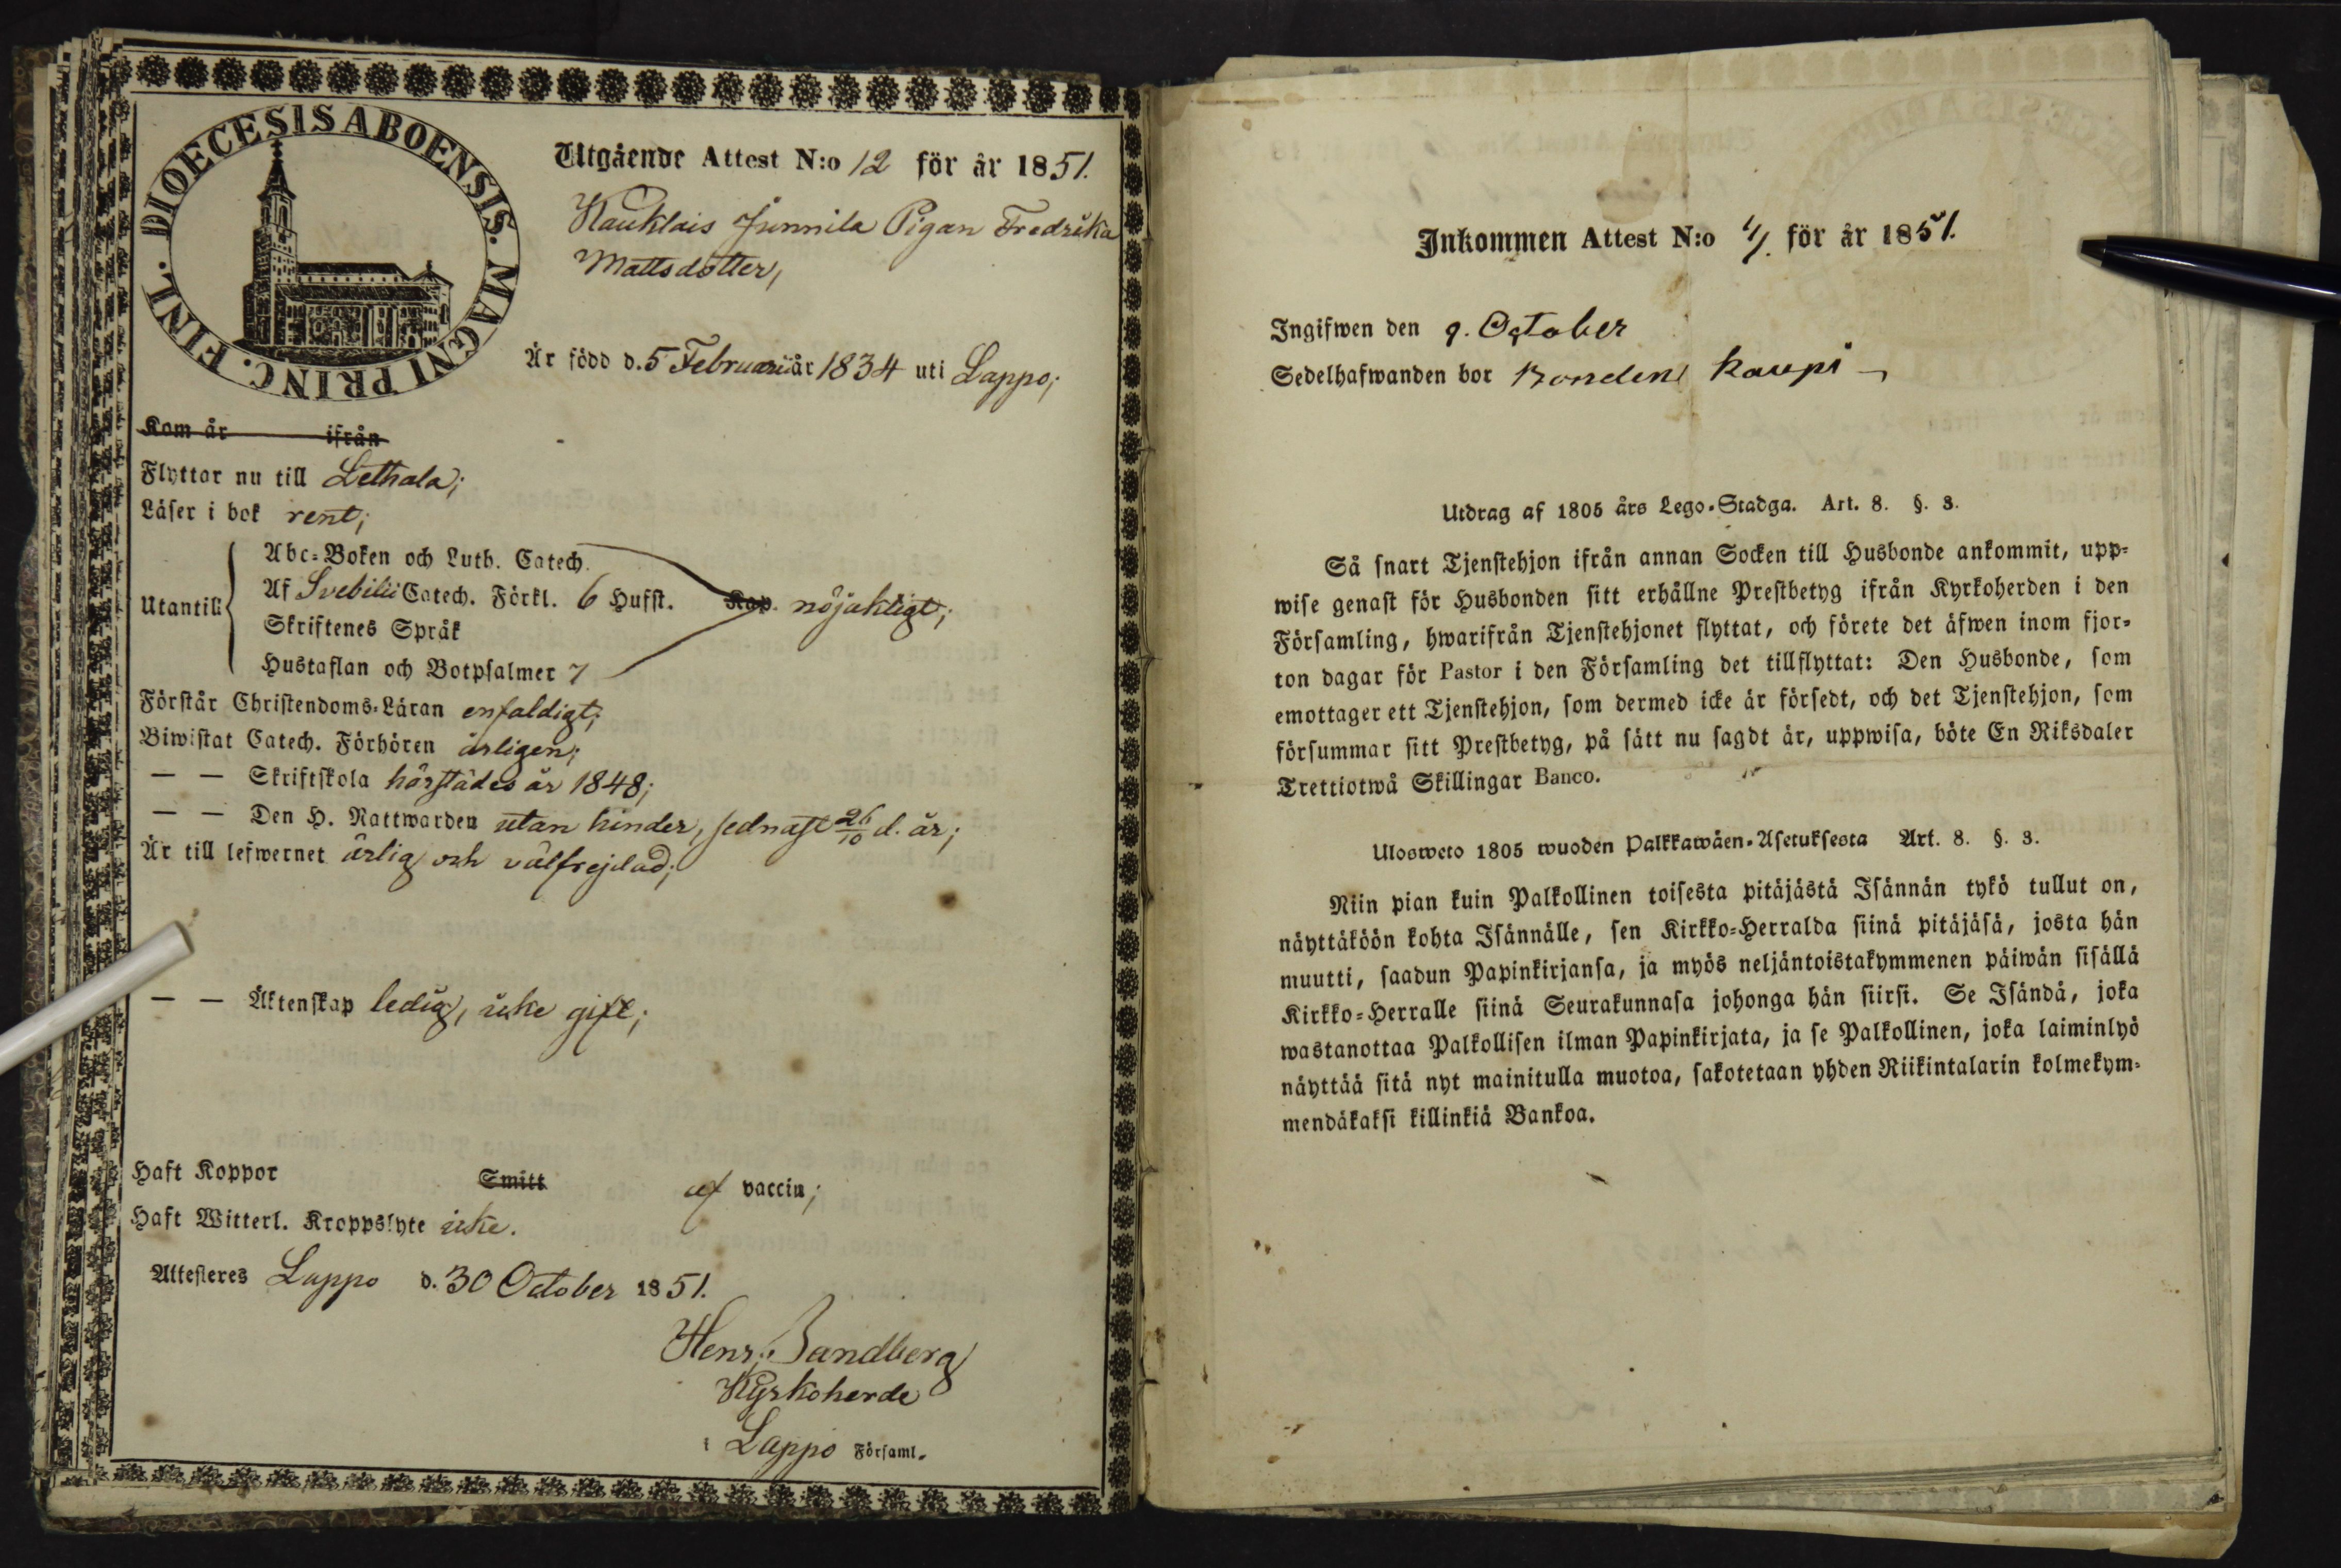 DIOECESIS ABOENSIS. MAGNI PRINC. FINL.
Utgående Attest N:o 12 för år 1851.
Kauklais Junnila Pigan Fredrika
Mattsdotter,
Är född d. 5 Februari år 1834 uti Lappo;
Kom år ifrån
Flyttar nu till Lethala;
Läser i bok rent;
Utantill
Abc-Boken och Luth. Catech.
Af Svebilii Catech. Förkl. 6 Hufst. Kap. nöjaktigt;
Skriftenes Språk
Hustaflan och Botpsalmer 7
Förstår Christendoms-Läran enfaldigt;
Biwistat Catech. Förhören årligen;
— — Skriftskola härstädes år 1848;
— — Den H. Nattwarden utan hinder, sednast 26/10 d. år;
Är till lefwernet ärlig och välfrejdad;
— — Äktenskap ledig, icke gift;
Haft Koppor Smitt af vaccin;
Haft Witterl. Kroppslyte icke.
Attesteres Lappo d. 30 October 1851.
Henr. Sandberg
Kyrkoherde
i Lappo Församl.
Inkommen Attest N:o för år 1851.
Ingifwen den 9. October
Sedelhafwanden bor Bonden Kaupi
Utdrag af 1805 års Lego-Stadga. Art. 8. §. 3.
Så snart Tjenstehjon ifrån annan Socken till Husbonde ankommit, upp-
wise genast för Husbonden sitt erhållne Prestbetyg ifrån Kyrkoherden i den
Församling, hwarifrån Tjenstehjonet flyttat, och förete det äfwen inom fjor-
ton dagar för Pastor i den Församling det tillflyttat: Den Husbonde, som
emottager ett Tjenstehjon, som dermed icke är försedt, och det Tjenstehjon, som
försummar sitt Prestbetyg, på sätt nu sagdt är, uppwisa, böte En Riksdaler
Trettiotwå Skillingar Banco.
Ulosweto 1805 wuoden Palkkawäen-Asetuksesta Art. 8. §. 3.
Niin pian kuin Palkollinen toisesta pitäjästä Isännän tykö tullut on,
näyttäköön kohta Isännälle, sen Kirkko-Herralda siinä pitäjäsä, josta hän
muutti, saadun Papinkirjansa, ja myös neljäntoistakymmenen päiwän sisällä
Kirkko-Herralle siinä Seurakunnasa johonga hän siirsi. Se Isändä, joka
wastanottaa Palkollisen ilman Papinkirjata, ja se Palkollinen, joka laiminlyö
näyttää sitä nyt mainitulla muotoa, sakotetaan yhden Riikintalarin kolmekym-
mendäkaksi killinkiä Bankoa.